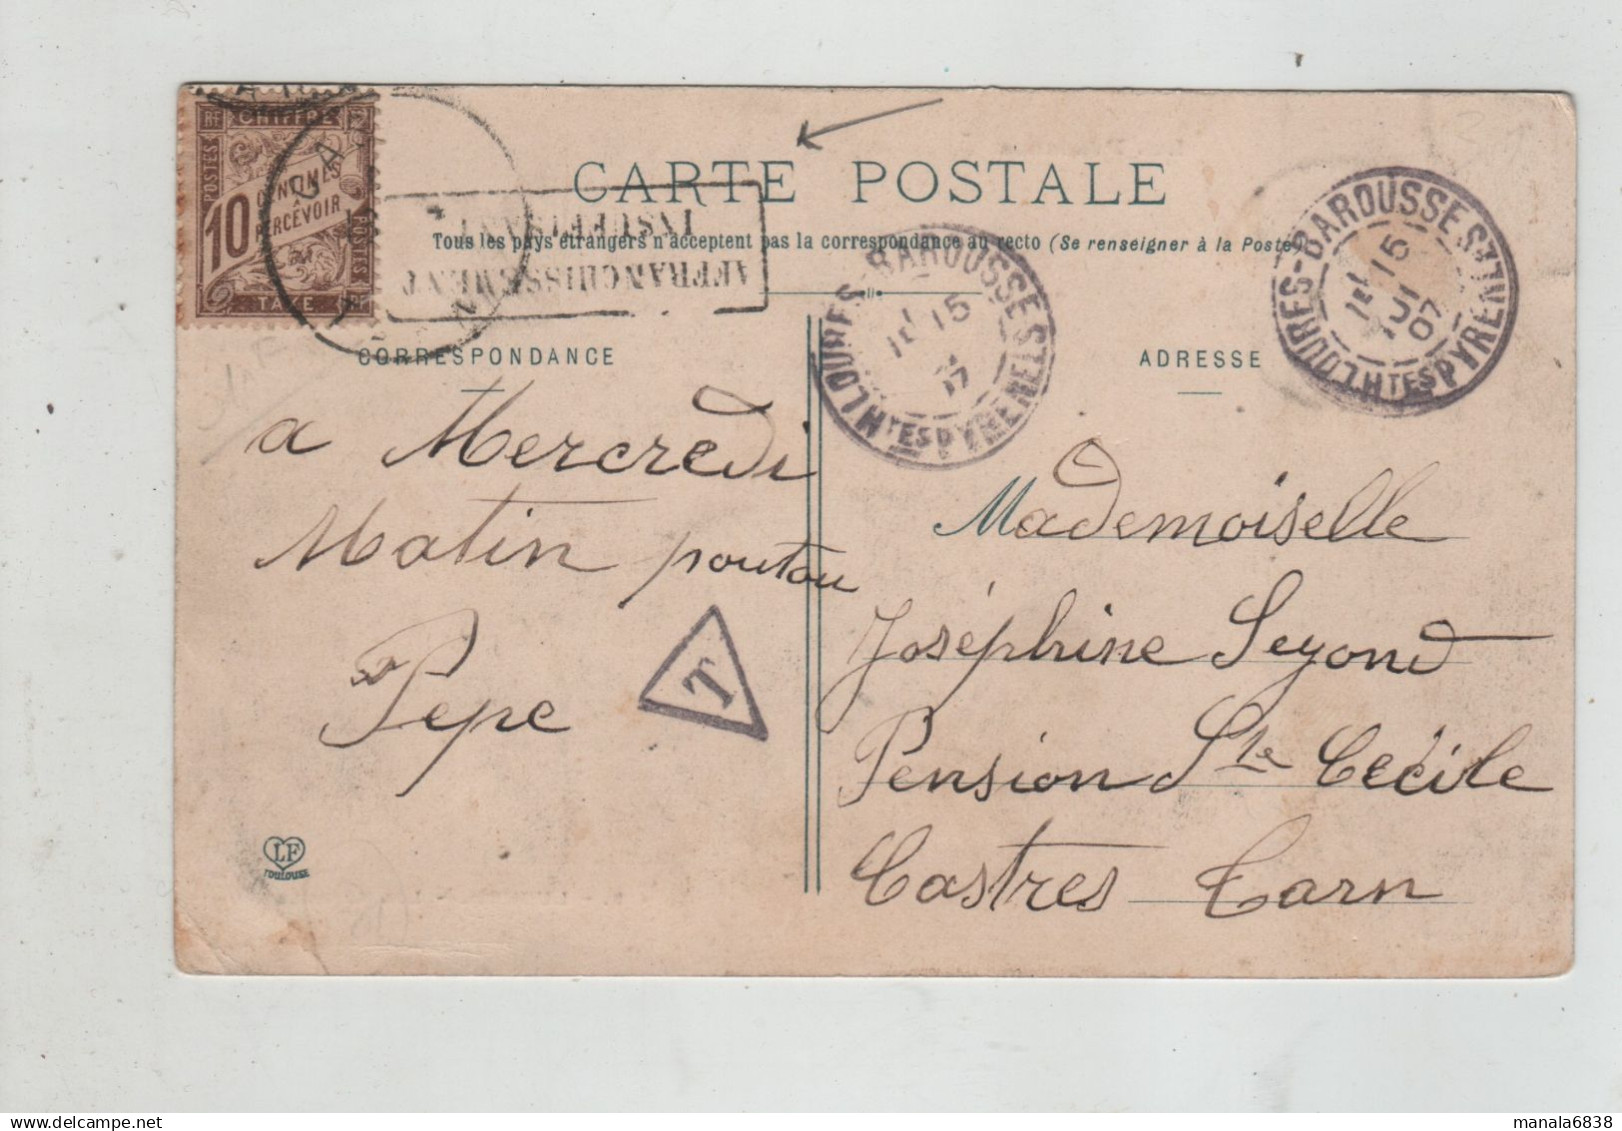 CARTE POSTALE
Tous les pays étrangers n'acceptent pas la correspondance au recto (Se renseigner à la Poste)
RF CHIFFRE
POSTES
10 CENTIMES
À
PERCEVOIR
POSTES
TAXE
AFFRANCHISSEMENT
INSUFFISANT
LOURES-BAROUSSE
15
HTES PYRENEES
LOURES-BAROUSSE
15
07
HTES PYRENEES
CORRESPONDANCE
a Mercredi
Matin poutou
Pepe
T
LF
TOULOUSE
ADRESSE
Mademoiselle
Joséphine Seyond
Pension Ste Cécile
Castres Tarn
manala6838